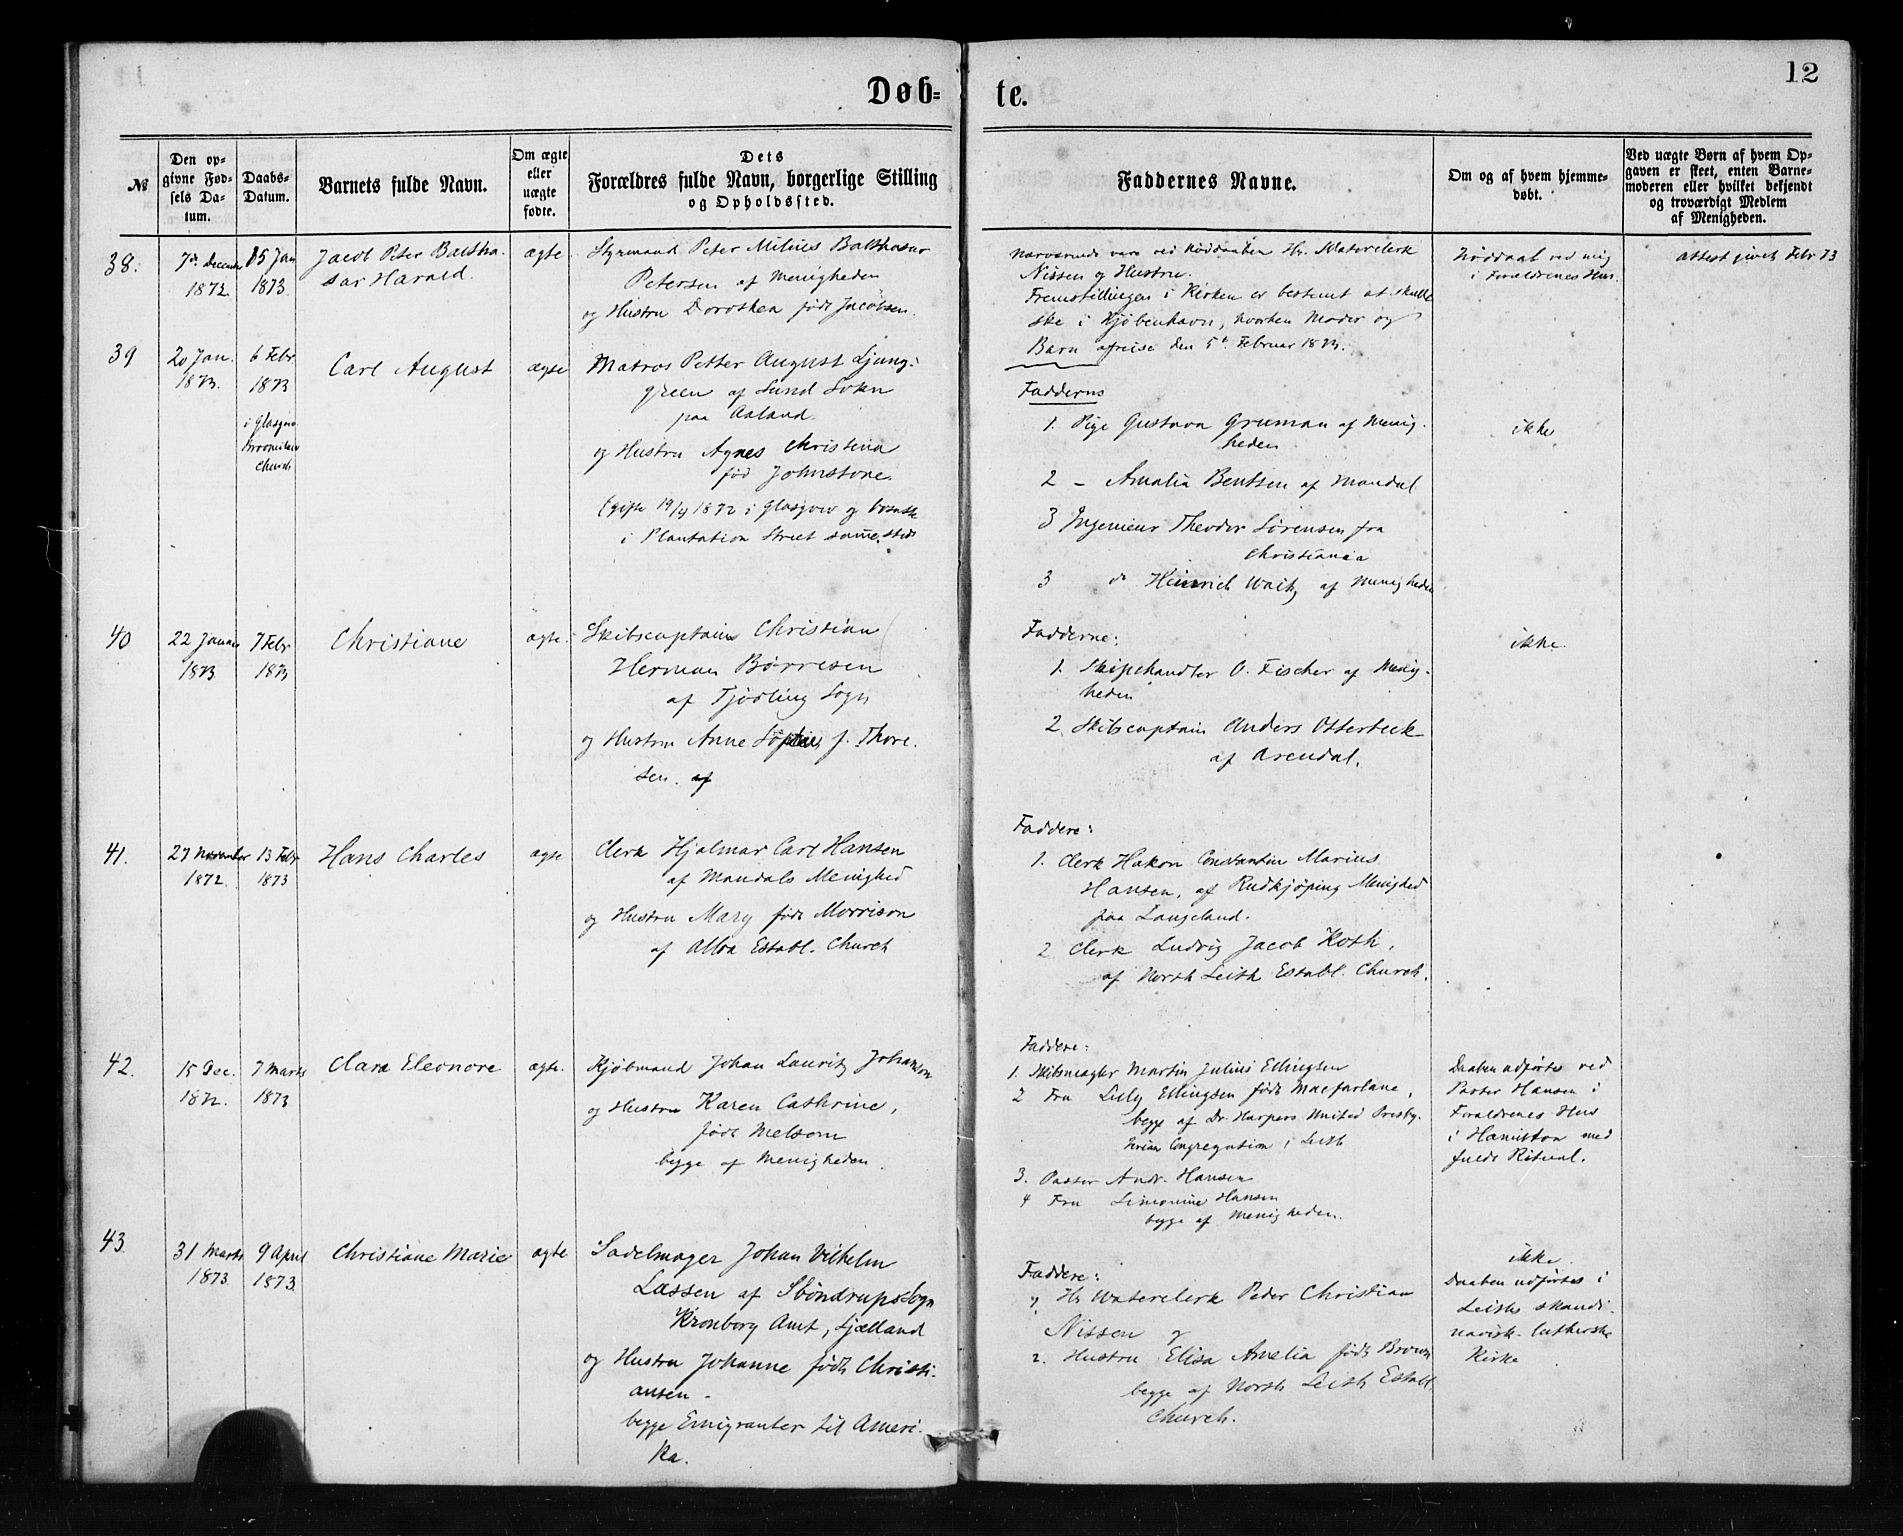 12
Døb=
te.
№
Den op=
givne Fød=
sels Da=
tum.
Daabs=
Datum.
Barnets fulde Navn.
Om ægte
eller
uægte
fødte.
Dets
Forældres fulde Navn, borgerlige Stilling
og Opholdssted.
Faddernes Navne.
Om og af hvem hjemme=
døbt.
Ved uægte Børn af hvem Op=
gaven er skeet, enten Barne=
moderen eller hvilket bekjendt
og troværdigt Medlem
af Menigheden.
38.
7de December
1872.
15 Jan
1873.
Jacob Peter Baltha-
sar Harald.
ægte
Styrmand Peter Milius Balthasar
Petersen af Menigheden
og Hustru Dorothea født Jacobsen.
Nærværende vare ved Nøddaaben Hr. Waterclerk
Nissen og Hustru.
Fremstillingen i Kirken er bestemt at skulle
ske i Kjøbenhavn, hvorhen Moder og
Barn afreise den 5te Februar 1873.
Nøddaab ved mig
i Forældrenes Hus.
attest given Febr 73
39
20 Jan.
1873.
6 Febr.
1873
i Glasgow
Church
Carl August
ægte
Matros Petter August Ljung-
green af Sund Sokn
paa Aaland.
og Hustru Agnes Christina
fød Johnstone.
(gifte 19/4 1872 i Glasgow og bosatte
i Plantation Street sammesteds
Fadderne
1. Pige Gustava Gruman af Menig-
heden
2 - Amalia Bentsen af Mandal
3 Ingenieur Theodor Sørensen fra
Christiania
3 do Heinrich Waitz af Menigheden
ikke
40
22 Januar
1873
7 Febr
1873
Christiane
ægte
Skibscaptain Christian
Herman Børresen
af Tjødling Sogn
og Hustru Anne f. Thore-
sen. af
Fadderne:
1. Skipshandler O. Fischer af Menig-
heden
2 Skibscaptain Anders Otterbeck
af Arendal.
ikke.
41.
27 November
1872.
13 Febr
1873
Hans Charles
ægte
Clerk Hjalmar Carl Hansen
af Mandals Menighed
og Hustru Mary født Morrison
af Alloa Establ. Church
Faddere:
1. Clerk Hakon Constantin Marius
Hansen, af Rudkjøping Menighed
paa Langeland.
2 Clerk Ludvig Jacob Koth,
af North Leith Establ. Church.
42.
15 Dec.
1872.
7 Marts
1873
Clara Eleonore
ægte.
Kjøbmand Johan Lauritz Johannson
og Hustru Karen Cathrine,
født Melsom
begge af Menigheden.
Faddere:
1. Skibsmægler Martin Julius Ellingsen
2 Fru Lilly Ellingsen født Macfarlane,
begge af Dr. Harpers United Presby-
terian Congregation i Leith
3. Pastor Andr. Hansen
4 Fru Simonine Hansen
begge af Menigheden.
Daaben udførtes ved
Pastor Hansen i
Forældrenes Hus
i Hamilton med
fuldt Ritual.
43.
31 Marts
1873.
9 April
1873.
Christiane Marie
ægte
Sadelmager Johan Vilhelm
Lassen af Sogn
Kronborg Amt, Sjælland
og Hustru Johanne født Christi-
ansen.
begge Emigranter til Ameri-
ka.
Faddere:
1. Hr. Waterclerk Peder Christian
Nissen og
2. Hustru Elisa Amelia født Brown
begge af North Leith Establ.
Church.
ikke.
Daaben udførtes i
Leiths skandi-
navisk-lutherske
Kirke